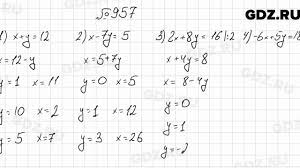 GDZ.RU
№957
1) x+y=12
x=12-y
y=1 x=11
y=0 x=12
y=5 x=7
2) x-7y=5
x=5+7y
y=0 x=5
y=1 x=12
y=3 x=26
3) 2x+8y=16 |:2
x+4y=8
x=8-4y
y=0
y=1
y=-2
4) -6x+5y=18
GDZ.RU